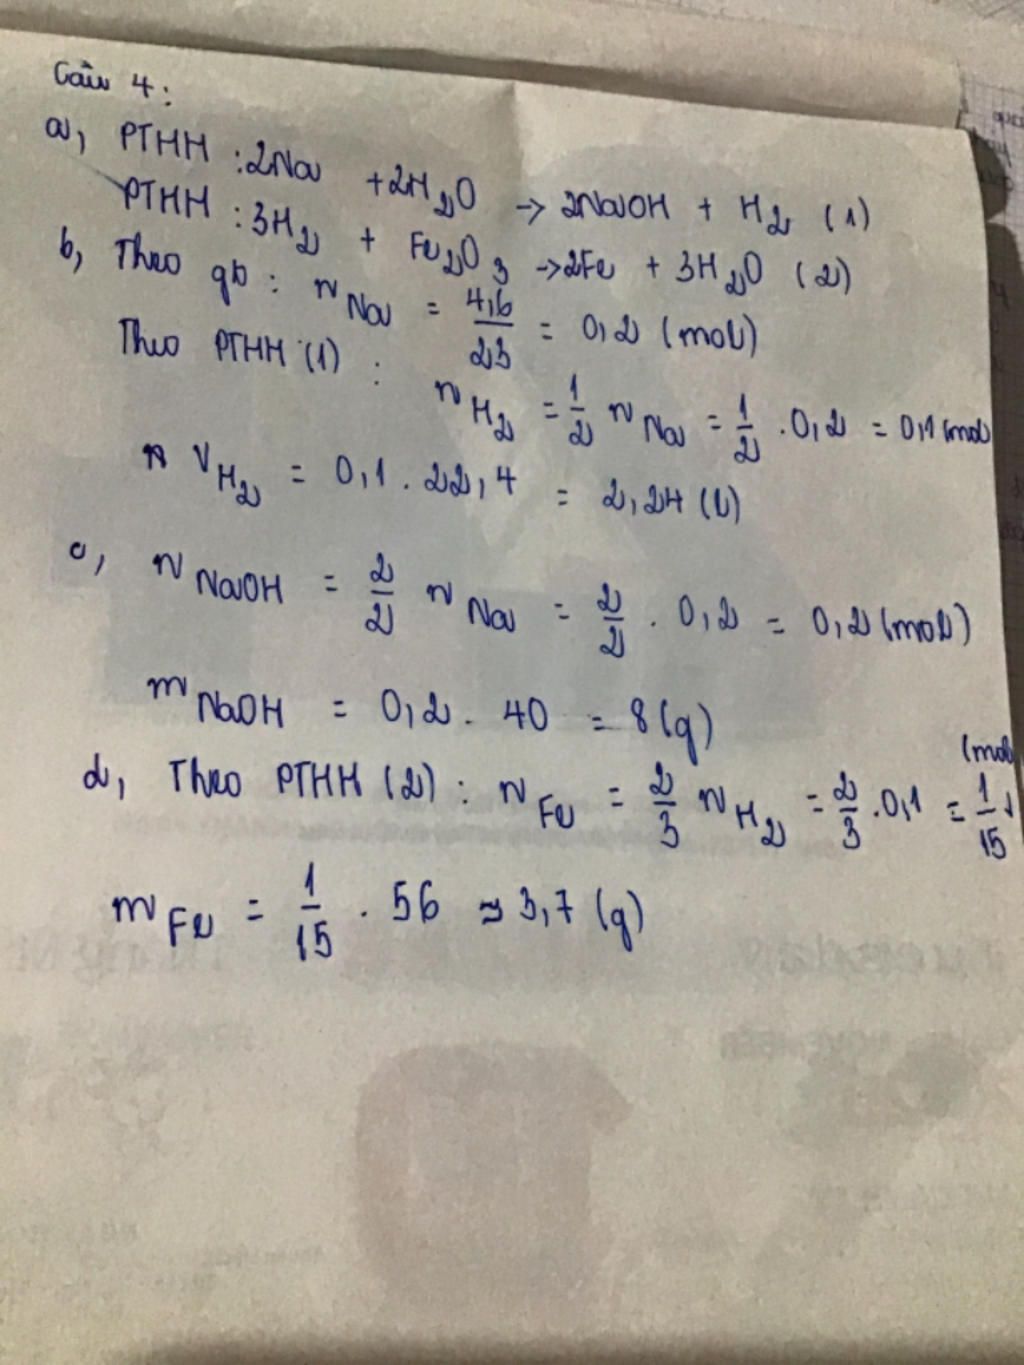 Câu 4:
a, PTHH : 2Na + 2H₂O → 2NaOH + H₂ (1)
PTHH : 3H₂ + Fe₂O₃ → 2Fe + 3H₂O (2)
b, Theo gt : n Na = 4,6/23 = 0,2 (mol)
Theo PTHH (1) : n H₂ = 1/2 n Na = 1/2 . 0,2 = 0,1 (mol)
V H₂ = 0,1 . 22,4 = 2,24 (l)
c, n NaOH = 2/2 n Na = 2/2 . 0,2 = 0,2 (mol)
m NaOH = 0,2 . 40 = 8 (g)
d, Theo PTHH (2) : n Fe = 2/3 n H₂ = 2/3 . 0,1 = 1/15 (mol
m Fe = 1/15 . 56 ≈ 3,7 (g)
NOVEMBER